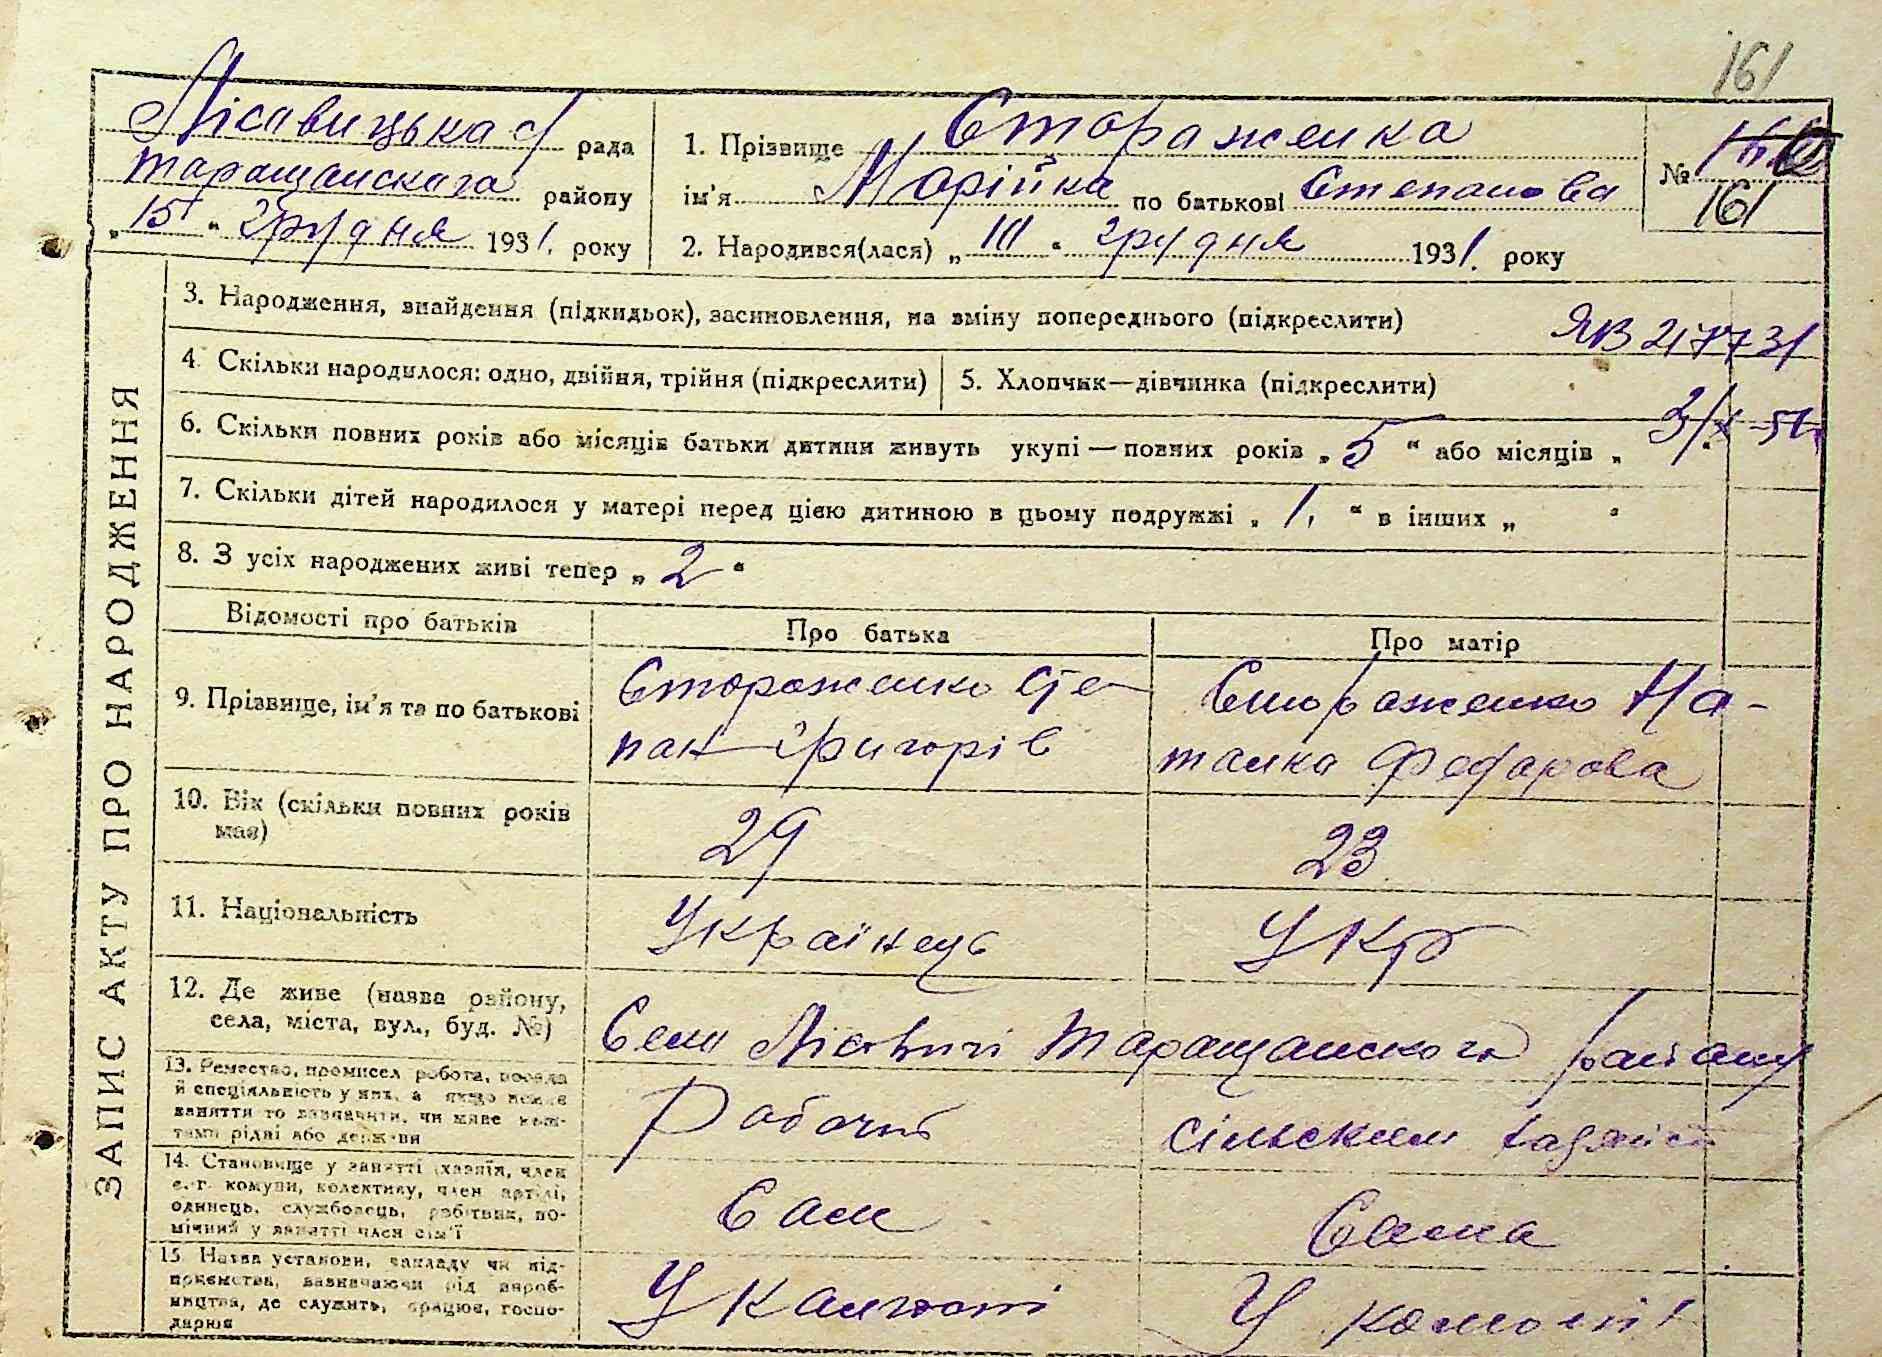 161
Лісавицька с/ рада
Таращанскага району
„15“ грудня 1931. року
1. Прізвище Стораженка
ім'я Марійка по батькові Степанова
№ 161
2. Народився(лася) „ “ грудня 1931. року
ЗАПИС АКТУ ПРО НАРОДЖЕННЯ
3. Народження, знайдення (підкидьок), засиновлення, на зміну попереднього (підкреслити)
4. Скільки народилося: одно, двійня, трійня (підкреслити)
5. Хлопчик—дівчинка (підкреслити)
6. Скільки повних років або місяців батьки дитини живуть укупі — повних років „5“ або місяців „
7. Скільки дітей народилося у матері перед цією дитиною в цьому подружжі „1.“ в інших „ “
8. З усіх народжених живі тепер „2“
Відомості про батьків
Про батька
Про матір
9. Прізвище, ім'я та по батькові
Стораженко Сте-
пан Григорів
Стораженко На-
талка Федарова
10. Вік (скільки повних років
має)
29
23
11. Національність
Українець
Укр
12. Де живе (назва району,
села, міста, вул., буд. №)
Село Лісавичі Таращанского району
13. Ремество, промисел робота, посада
й спеціяльність у них, а якщо немає
заняття то зазначити, чи живе кош-
тами рідні або держави
Рабочий
14. Становище у занятті (хазяїн, член
с.-г. комуни, колективу, член артілі,
одинець, службовець, робітник, по-
мічний у занятті член сім'ї
Сам
Сама
15. Назва установи, закладу чи під-
приємства, зазначаючи рід вироб-
ництва, де служить, працює, госпо-
дарює
У
У